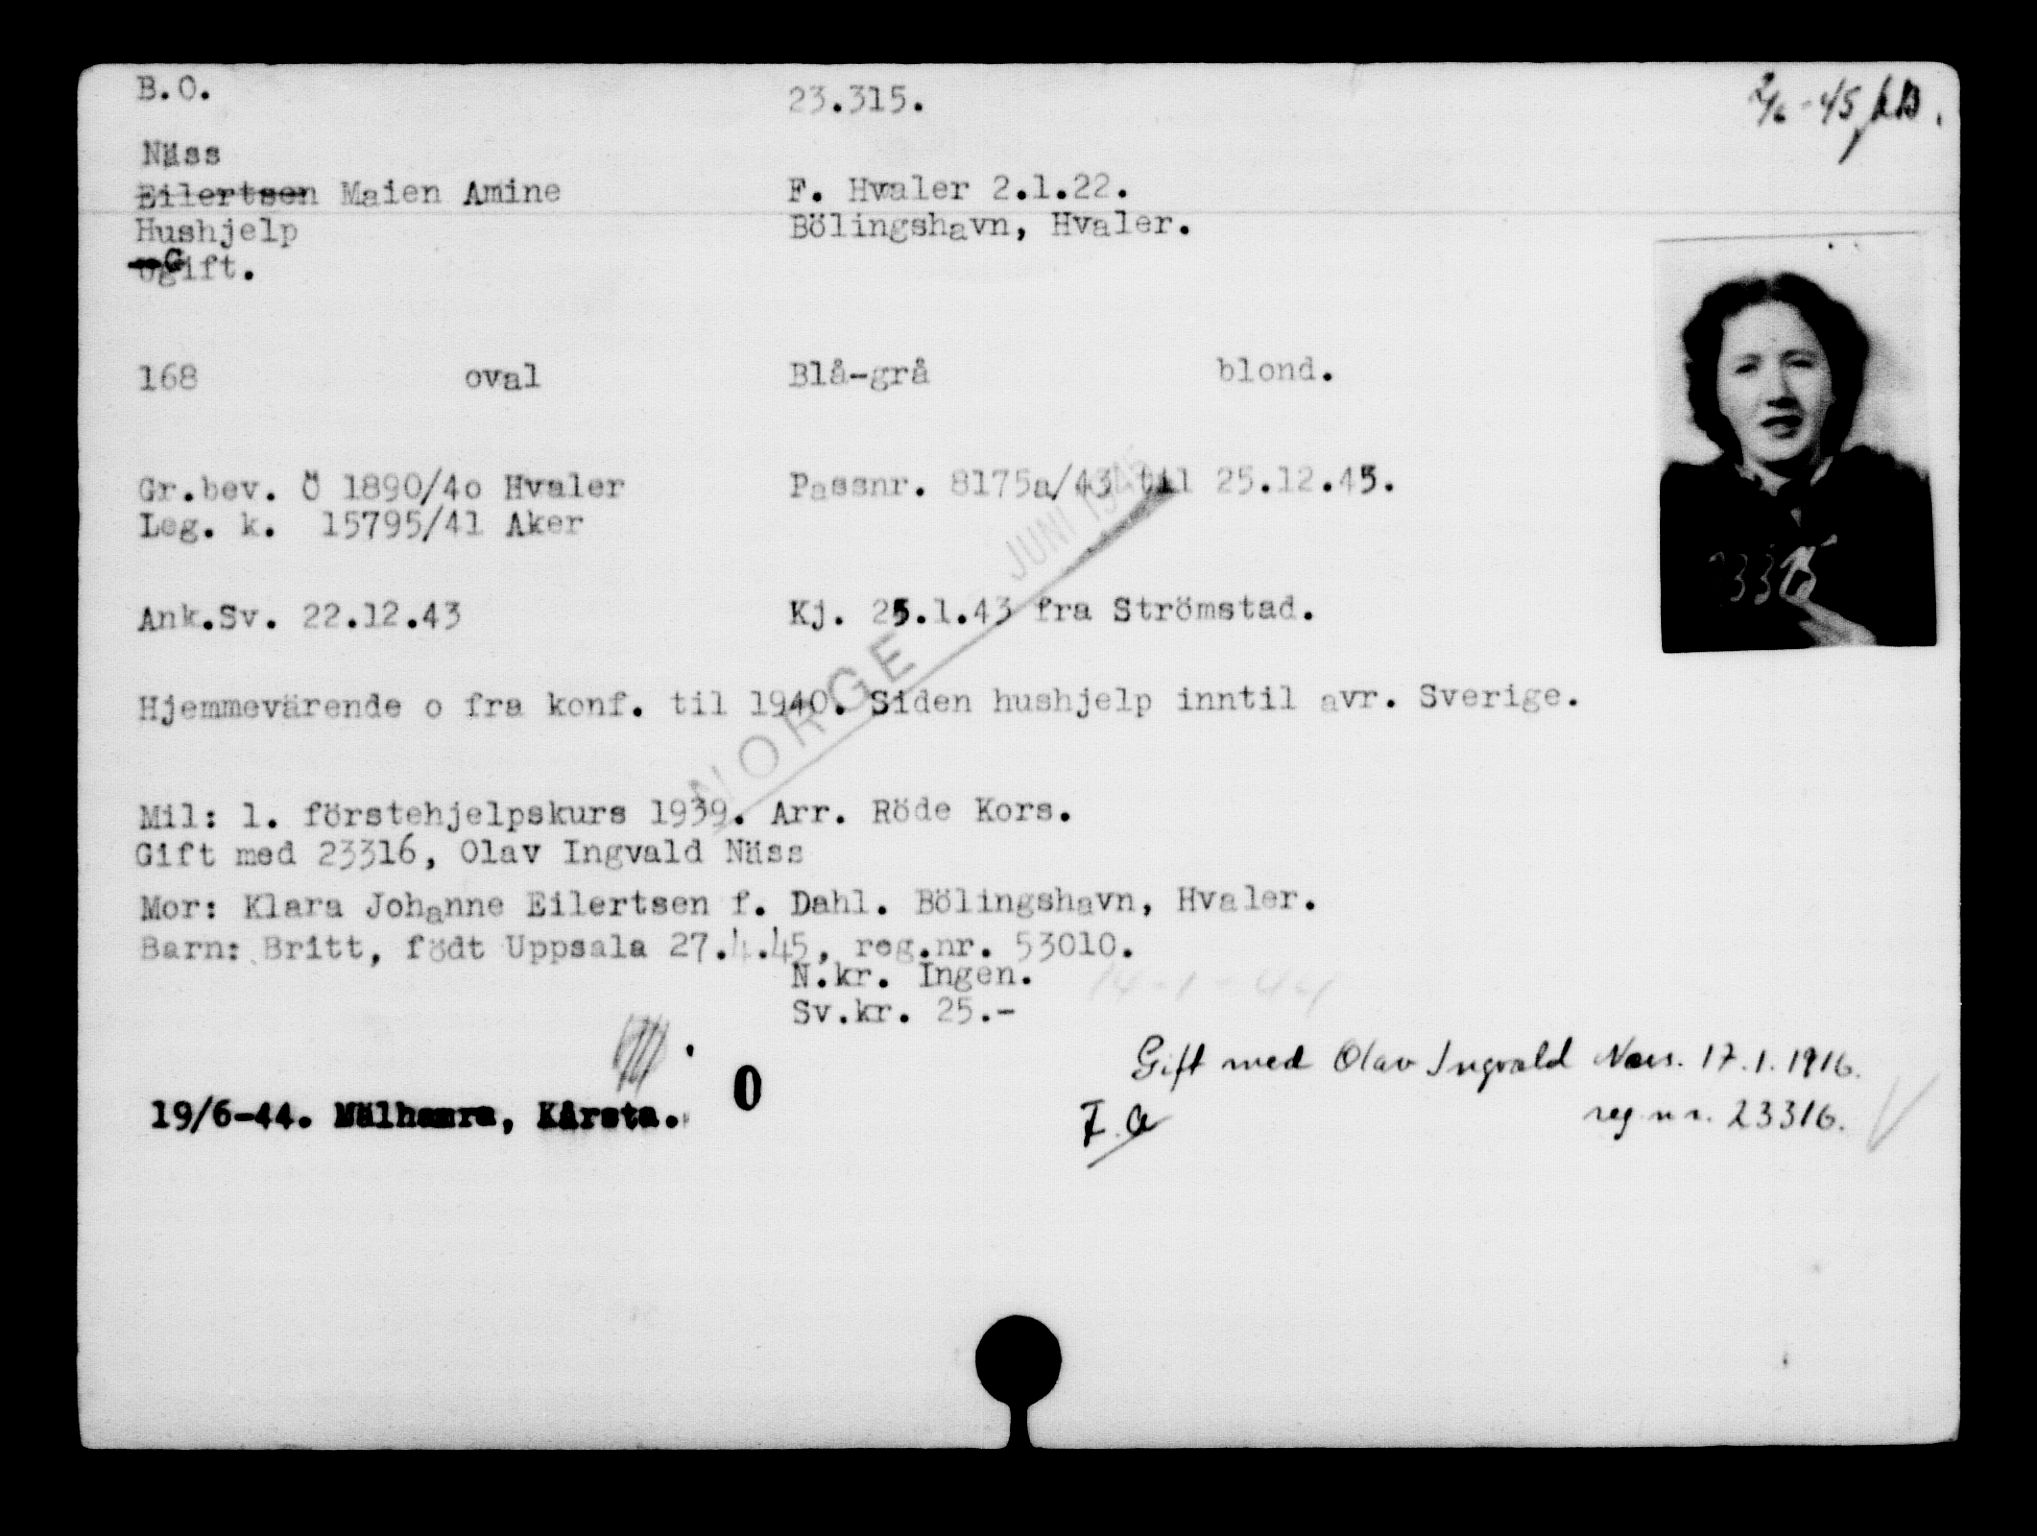 B.O.
23.315.
2/6-45
Näss
Eilertsen Maien Amine
F. Hvaler 2.1.22.
Hushjelp
Bölingshavn, Hvaler.
Gift.
168 oval Blå-grå blond.
Gr.bev. Ö 1890/4o Hvaler
Passnr. 8175a/43 til 25.12.45.
Leg. k. 15795/41 Aker
JUNI 1945
NORGE
23315
Ank.Sv. 22.12.43
Kj. 25.1.43 fra Strömstad.
Hjemmevärende o fra konf. til 1940. Siden hushjelp inntil avr. Sverige.
Mil: 1. förstehjelpskurs 1939. Arr. Röde Kors.
Gift med 23316, Olav Ingvald Näss
Mor: Klara Johanne Eilertsen f. Dahl. Bölingshavn, Hvaler.
Barn: Britt, född Uppsala 27.4.45, reg.nr. 53010.
N.kr. Ingen.
14-1-44
Sv.kr. 25.-
Gift med Olav Ingvald Næss. 17.1.1916.
reg nr. 23316.
19/6-44. Mälhamra, Kårsta. 0
F.A